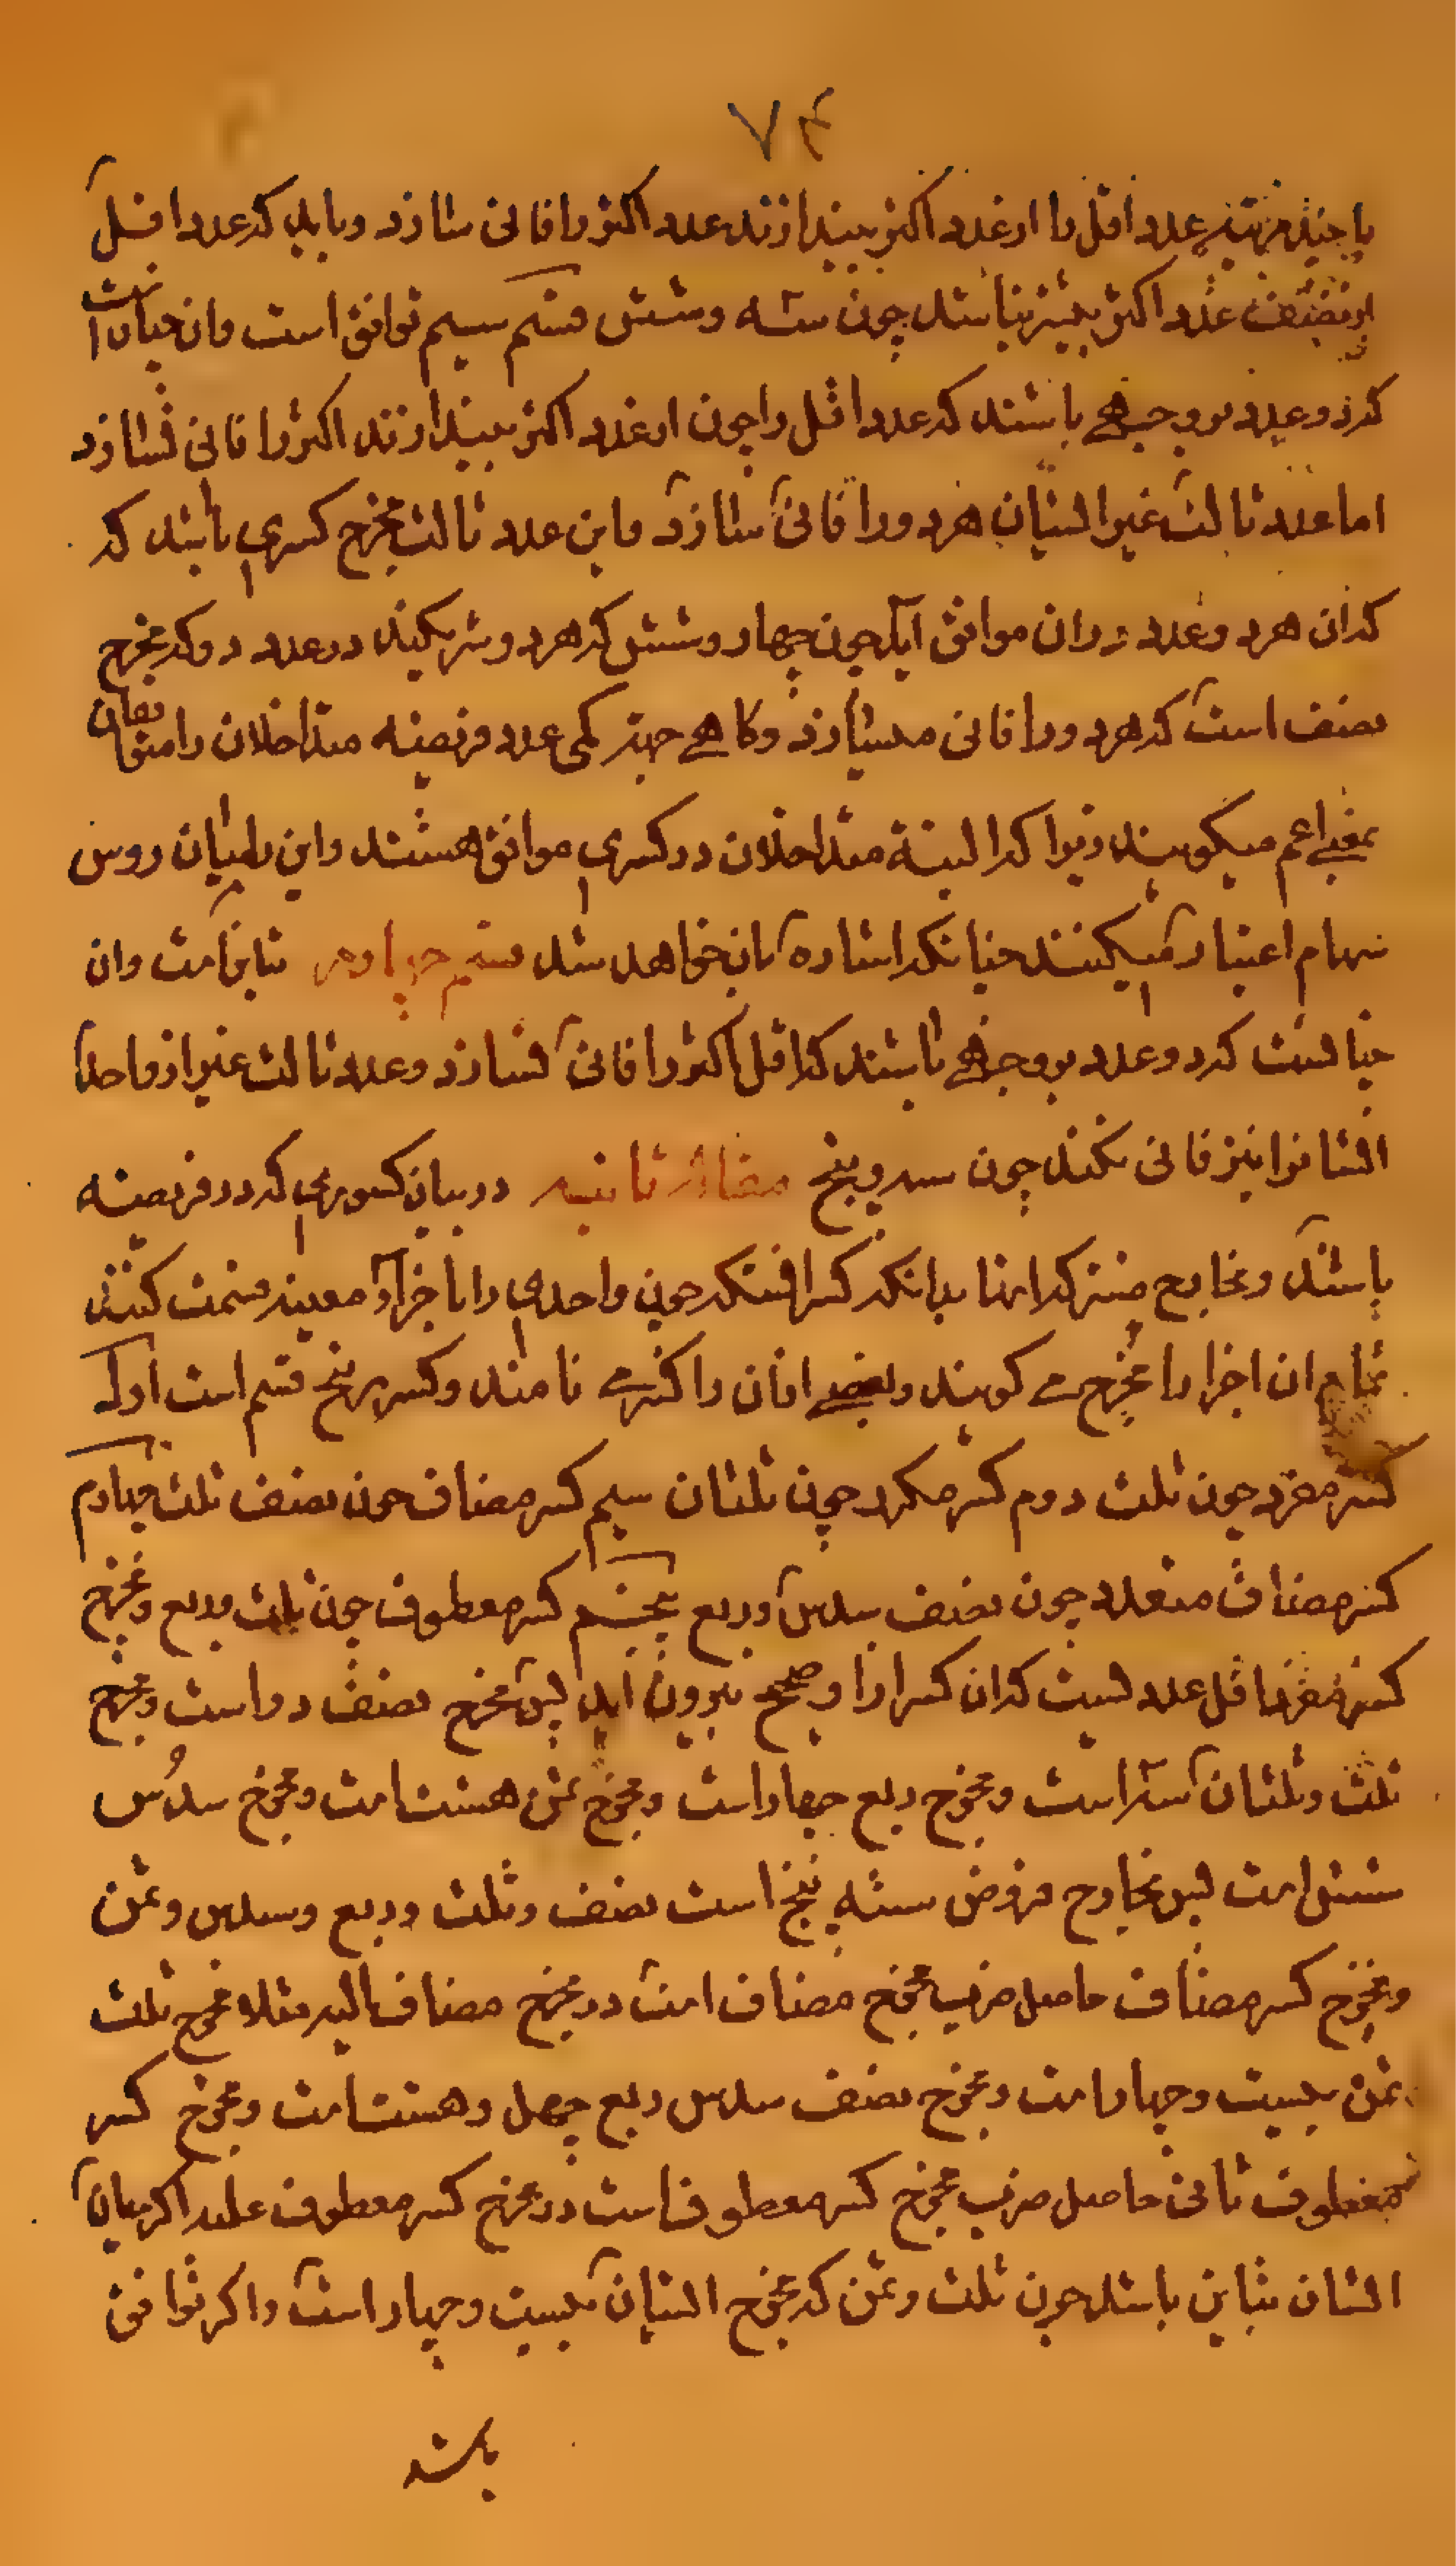 ۷۴
یا چند مرتبه عدد اقل را از عدد اکثر بیندازند عدد اکثر را فانی سازد و باید که عدد اقل
از نصف عدد اکثر بیشتر نباشد چون سه و شش قسم سیم توافق است و ان چنان است
که دو عدد بر وجهی باشند که عدد اقل را چون از عدد اکثر بیندازند اکثر را فانی نسازد
اما عدد ثالث غیر ایشان هر دو را فانی سازد و این عدد ثالث مخرج کسری باشد که
که ان هر دو عدد در ان موافق اید چون چهار و شش که هر دو شریکند در عدد دو که مخرج
نصف است که هر دو را فانی میسازد و کاهی جهة کمی عدد فریضه متداخلان را متوافقان
بمعنی اعم میکویند زیرا که البته متداخلان در کسری موافق هستند و این را میان روس
سهام اعتبار میکنند چنانکه اشاره بان خواهد شد قسم چهارم تباین است وان
چنانست که دو عدد بر وجهی باشند که اقل اکثر را فانی نسازد و عدد ثالث غیر از واحد
ایشانرا نیز فانی نکند چون سه و پنج مقاله ثانیه در بیان کسوری که در فریضه
باشند و مخارج مشترکه اینها بدانکه کسر انستکه چون واحدی را با جزاء معینه قسمت کنند
تمام ان اجزا را مخرج می کویند و بعضی از ان را کسر می نامند و کسر بر پنج قسم است اول
کسر مفرد چون ثلث دوم کسر مکرر چون ثلثان سیم کسر مضاف چون نصف ثلث چهارم
کسر مضاف متعدد چون نصف سدس و ربع پنجم کسر معطوف چون ثلث و ربع و مخرج
کسر مفرد اقل عددیست که ان کسر از او صحیح بیرون اید پس مخرج نصف دو است و مخرج
ثلث و ثلثان سه است و مخرج ربع چهار است و مخرج ثمن هشت است و مخرج سدس
شش است پس مخارج فروض سته پنج است نصف و ثلث و ربع و سدس و ثمن
و مخرج کسر مضاف حاصل ضرب مخرج مضاف است در مخرج مضاف الیه مثلا مخرج ثلث
ثمن بیست و چهار است و مخرج نصف سدس ربع چهل و هشت است و مخرج کسر
معطوف ثانی حاصل ضرب مخرج کسر معطوف است در مخرج کسر معطوف علیه اکر میان
ایشان تباین باشد چون ثلث و ثمن که مخرج ایشان بیست و چهار است و اکر توافق
باشد